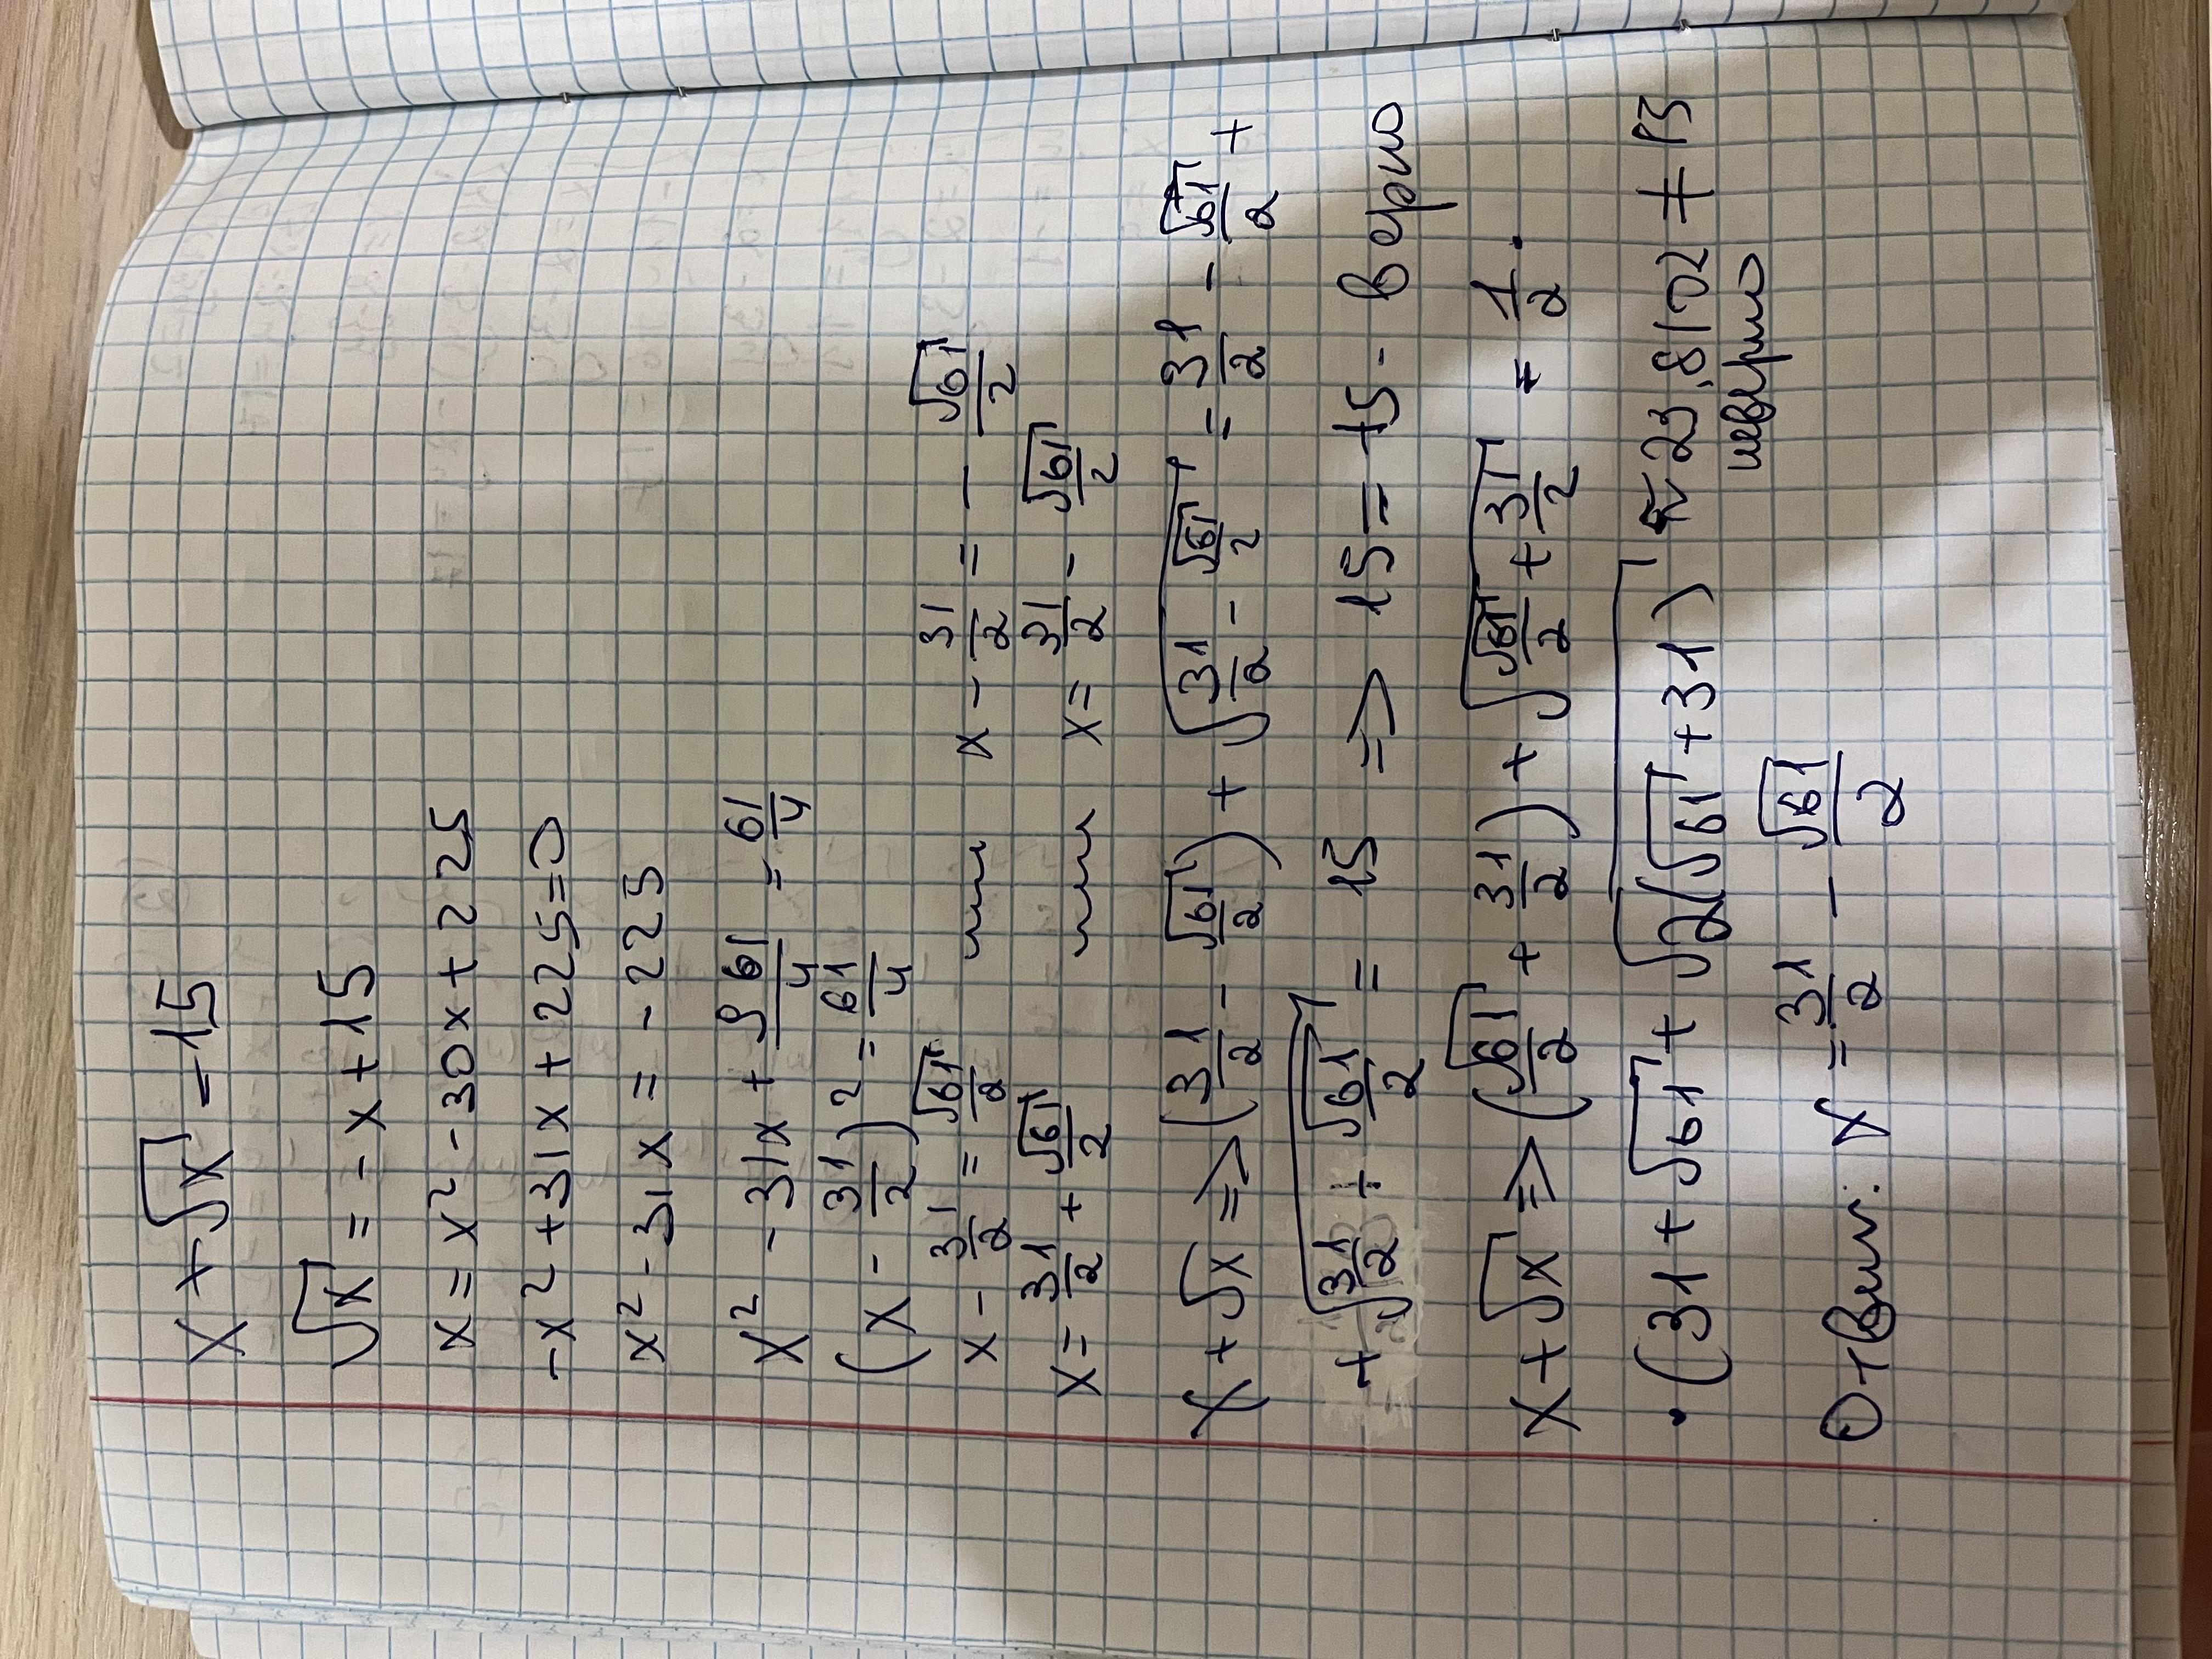 x + √x = 15
√x = -x + 15
x = x² - 30x + 225
-x² + 31x + 225 = 0
x² - 31x = -225
x² - 31x + 961/4 = 61/4
(x - 31/2)² = 61/4
x - 31/2 = √61/2 или x - 31/2 = - √61/2
x = 31/2 + √61/2 или x = 31/2 - √61/2
x + √x => (31/2 - √61/2) + √(31/2 - √61/2) = 31/2 - √61/2 +
+ √(31/2 + √61/2) = 15 => 15 = 15 - верно
x + √x => (√61/2 + 31/2) + √(√61/2 + 31/2) = 1/2 ·
· (31 + √61 + √(2(√61 + 31)) ≈ 23,8102 ≠ 15
неверно
Ответ: x = 31/2 - √61/2